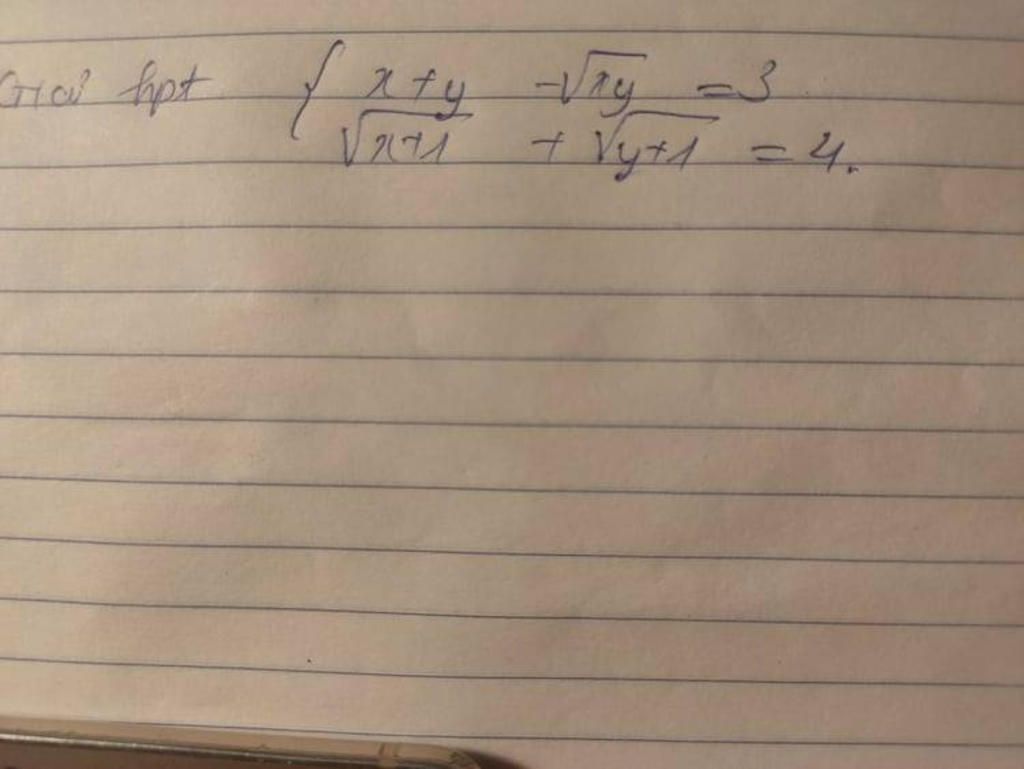 Giải hpt { x + y - √xy = 3
√x+1 + √y+1 = 4.